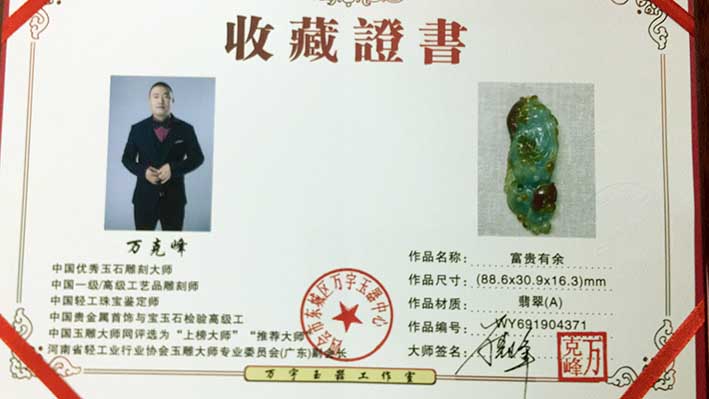 收藏證書
万克峰
中国优秀玉石雕刻大师
中国一级/高级工艺品雕刻师
中国轻工珠宝鉴定师
中国贵金属首饰与宝玉石检验高级工
中国玉雕大师网评选为“上榜大师” “推荐大师”
·河南省轻工业行业协会玉雕大师专业委员会(广东)副会长
会市东城区万宇玉器中心
作品名称: 富贵有余
作品尺寸: (88.6x30.9x16.3)mm
作品材质: 翡翠(A)
作品编号: WY691904371
大师签名: 万克峰
万克峰
万宇玉器工作室